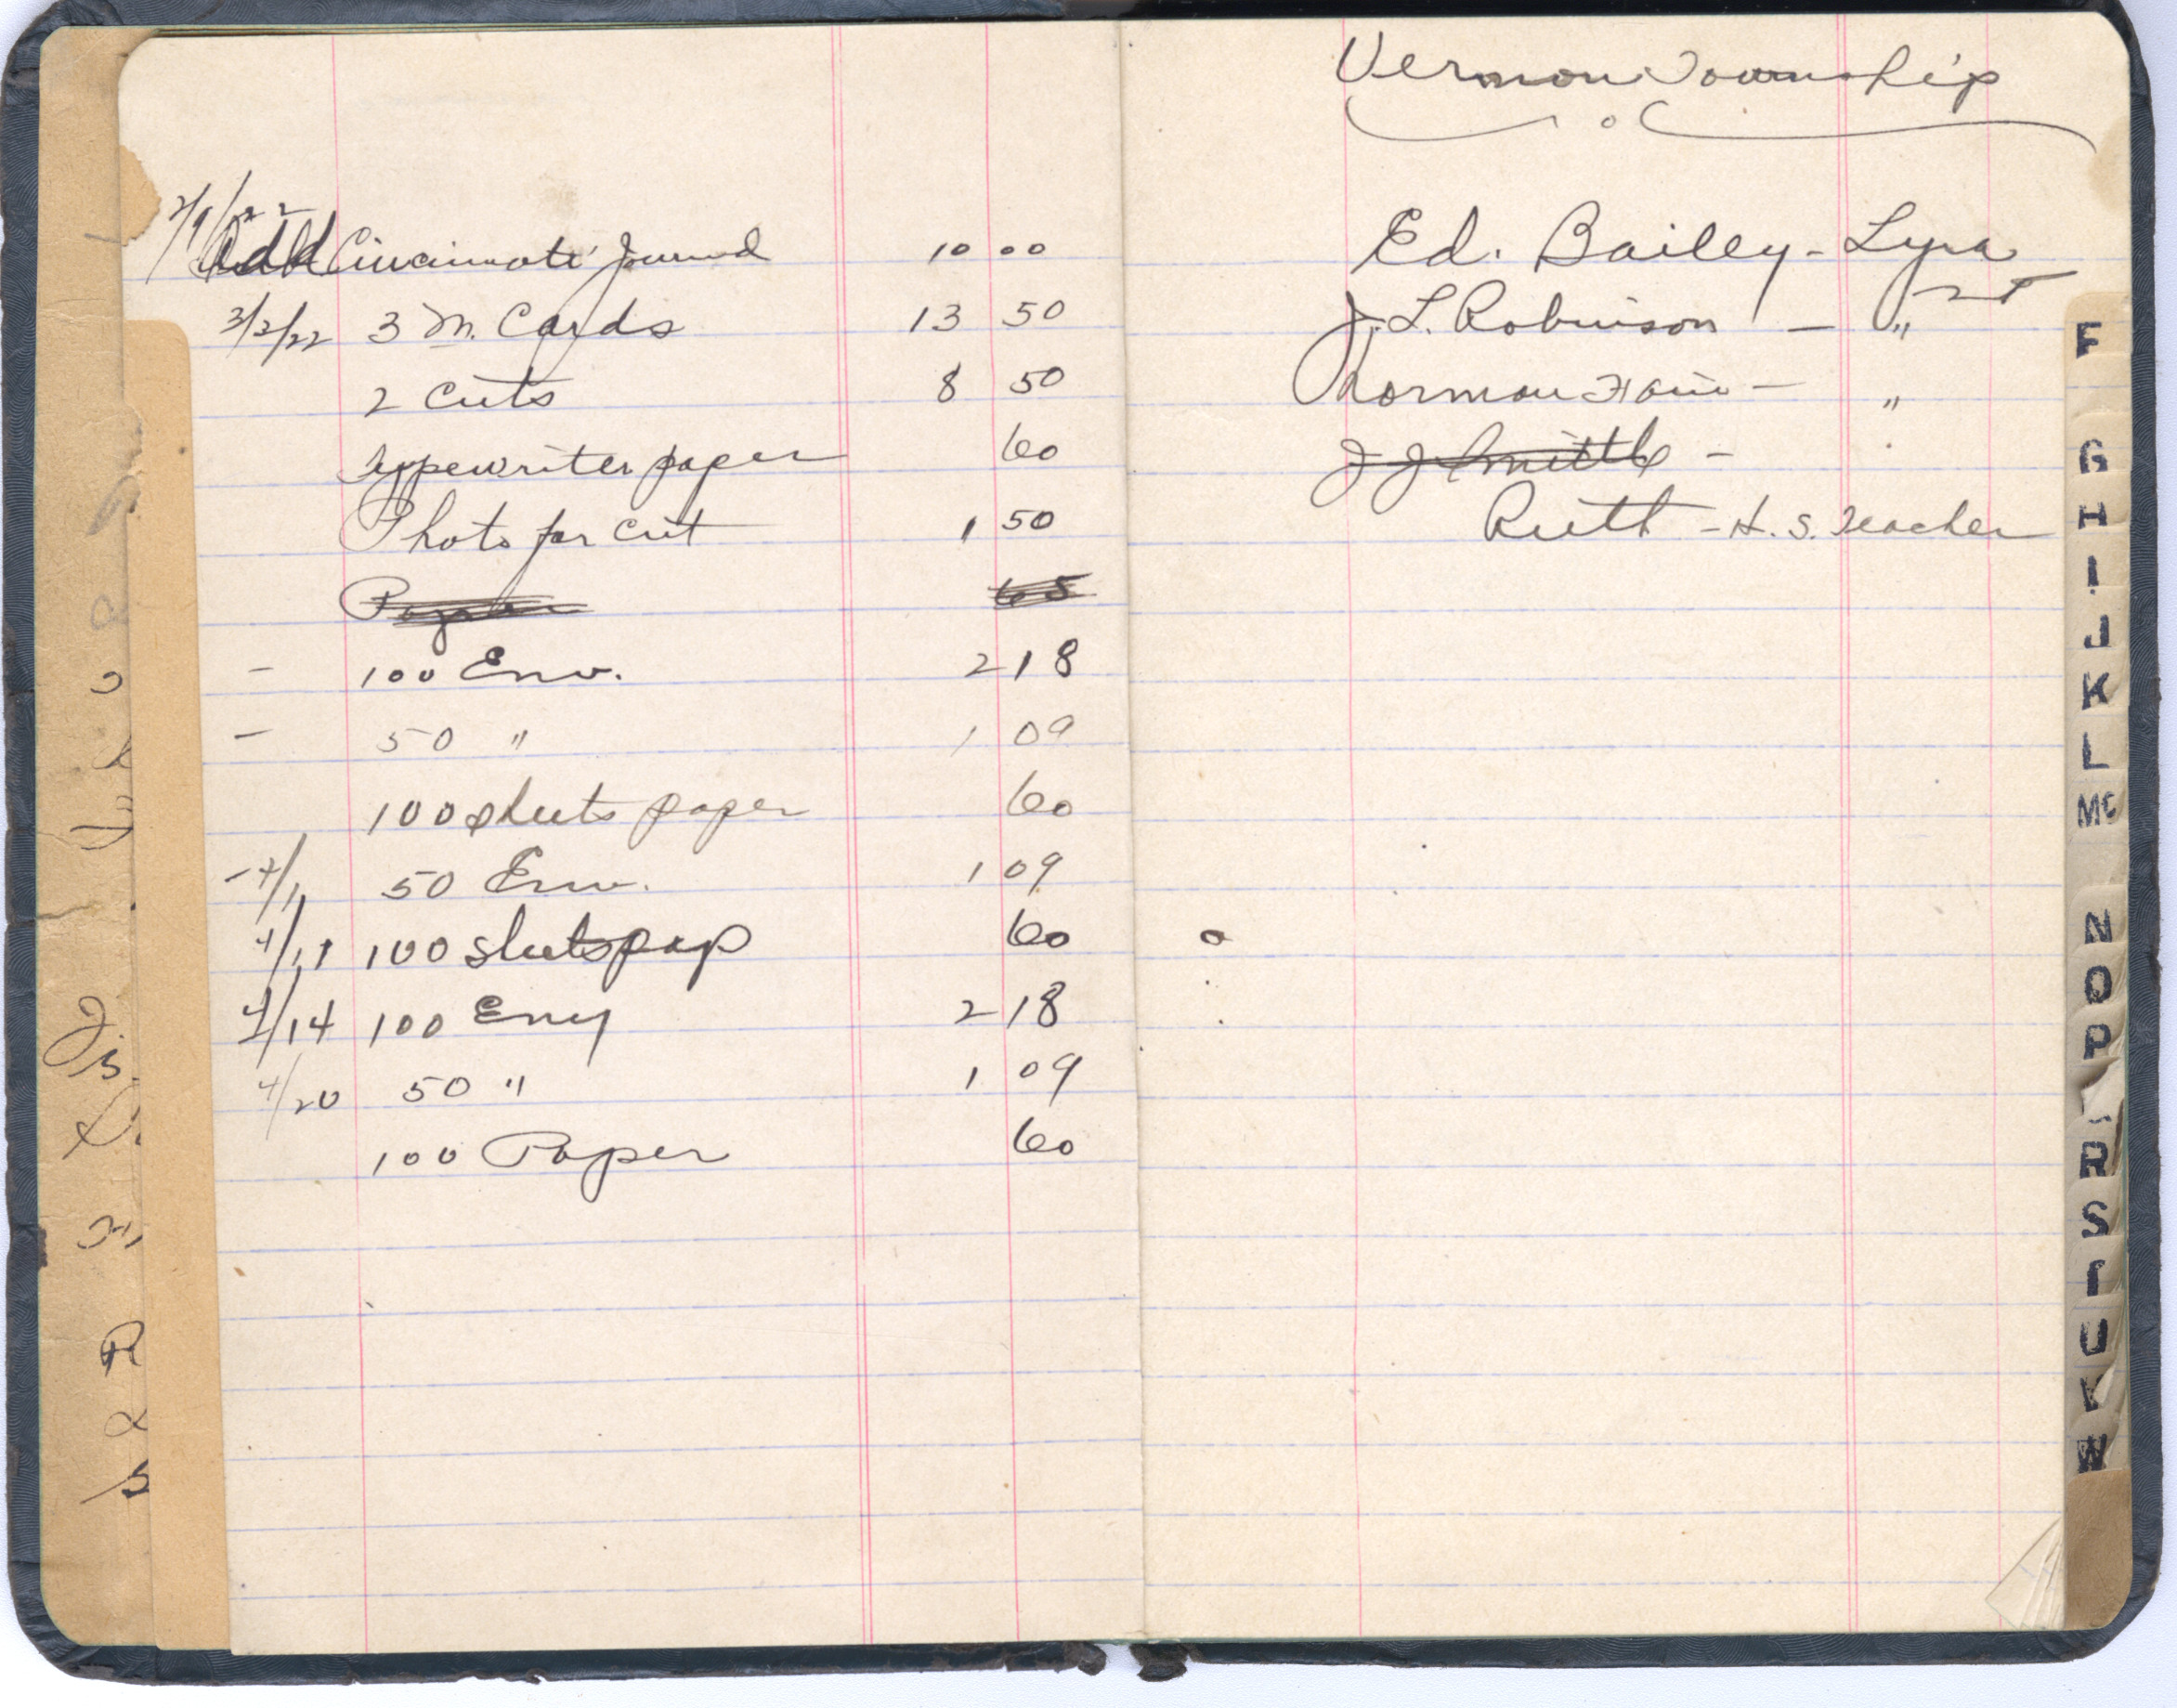 2/9/22
Add Cincinnati Journal 10 00
3/2/22 3 M. Cards 13 50
2 Cuts 8 50
Typewriter paper 60
Photo for cut 1 50
Paper 65
- 100 Env. 2 18
- 50 " 1 09
100 sheets paper 60
- 4/1 50 Env. 1 09
4/11 100 sheets pap 60
4/14 100 Env 2 18
4/20 50 " 1 09
100 Paper 60
Vernon Township
Ed. Bailey - Lyra
J. L. Robinson - "
Norman - "
J J Smith -
Ruth - H. S. Teacher
F
G
H
I
J
K
L
Mc
N
O
P
R
S
T
U
V
W